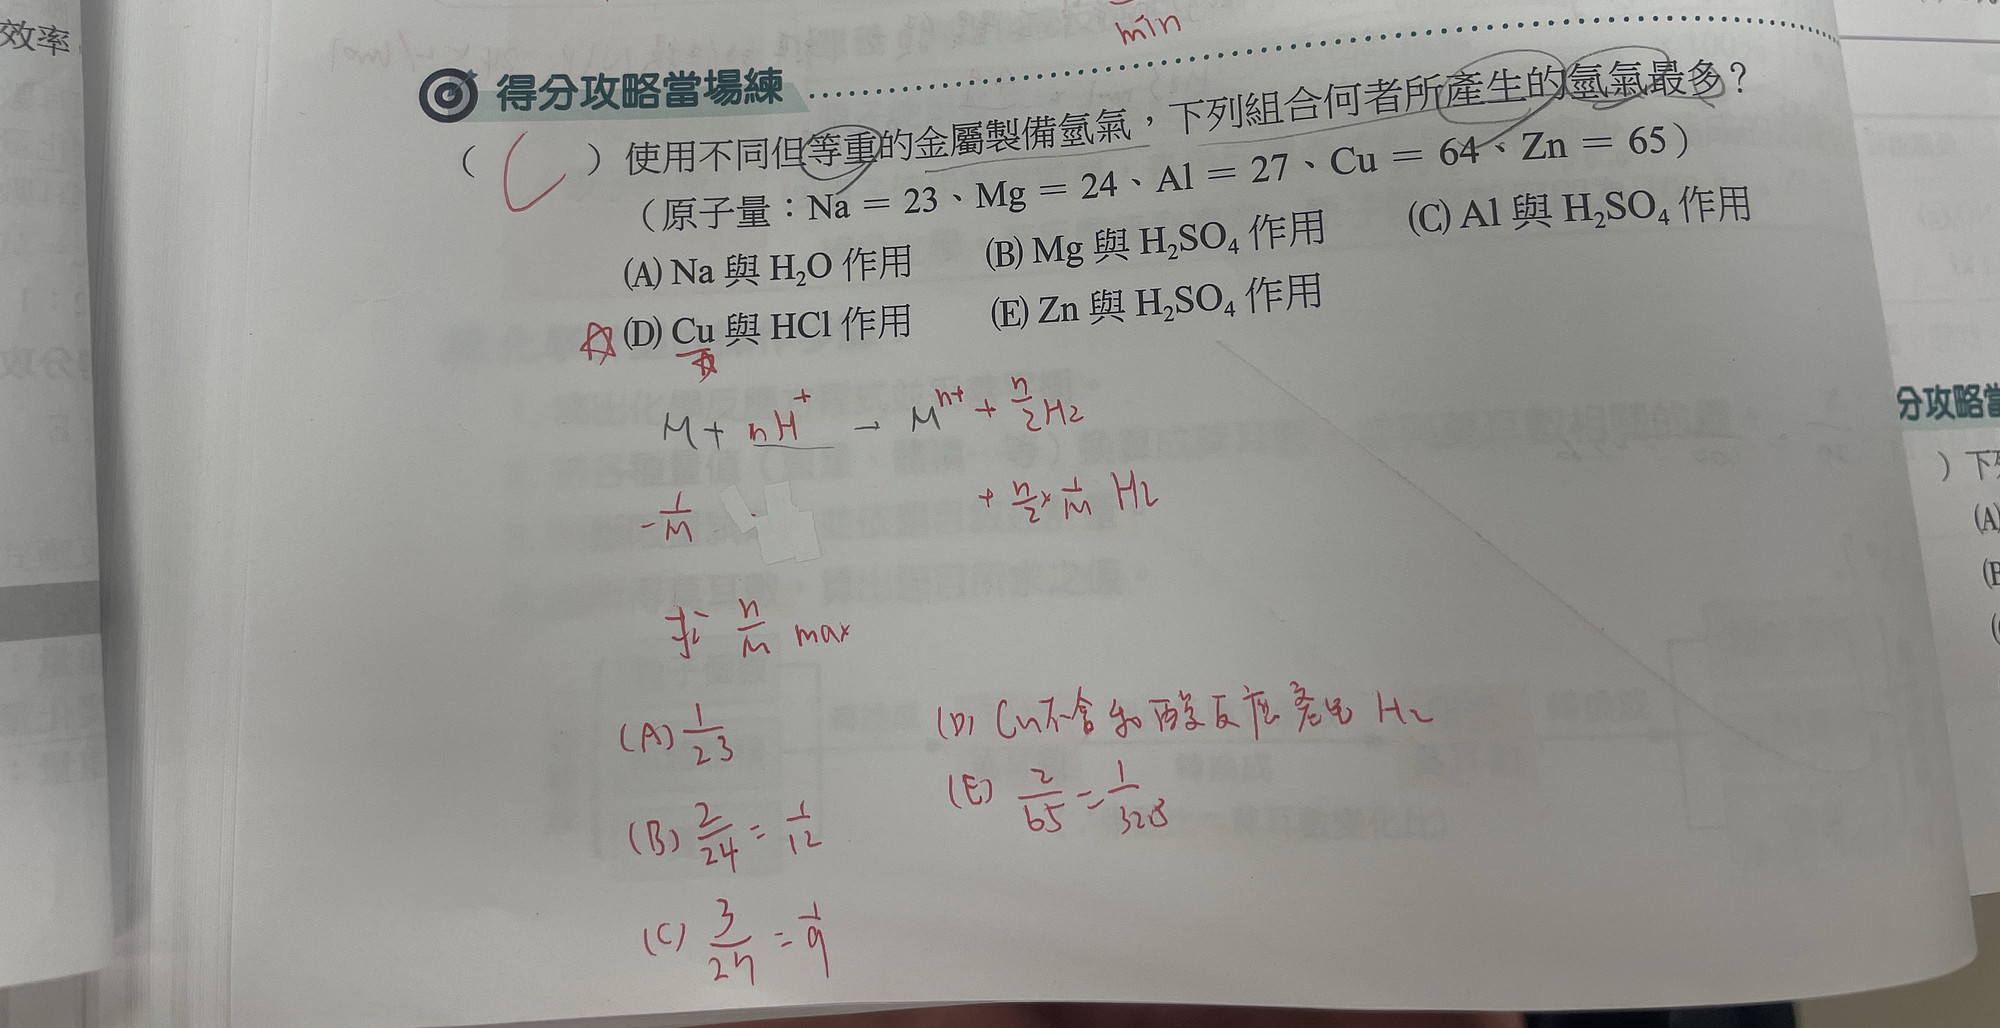 效率
min
得分攻略當場練
( C ) 使用不同但等重的金屬製備氫氣，下列組合何者所產生的氫氣最多？
（原子量：Na = 23、Mg = 24、Al = 27、Cu = 64、Zn = 65）
(A) Na 與 H₂O 作用 (B) Mg 與 H₂SO₄ 作用 (C) Al 與 H₂SO₄ 作用
(D) Cu 與 HCl 作用 (E) Zn 與 H₂SO₄ 作用
M + nH⁺ → Mⁿ⁺ + n/2 H₂
- 1/M + n/2 × 1/M H₂
求 n/M max
(A) 1/23
(B) 2/24 = 1/12
(C) 3/27 = 1/9
(D) Cu不會和酸反應產生 H₂
(E) 2/65 = 1/32.5
分攻略當
) 下列
(A)
(B
(